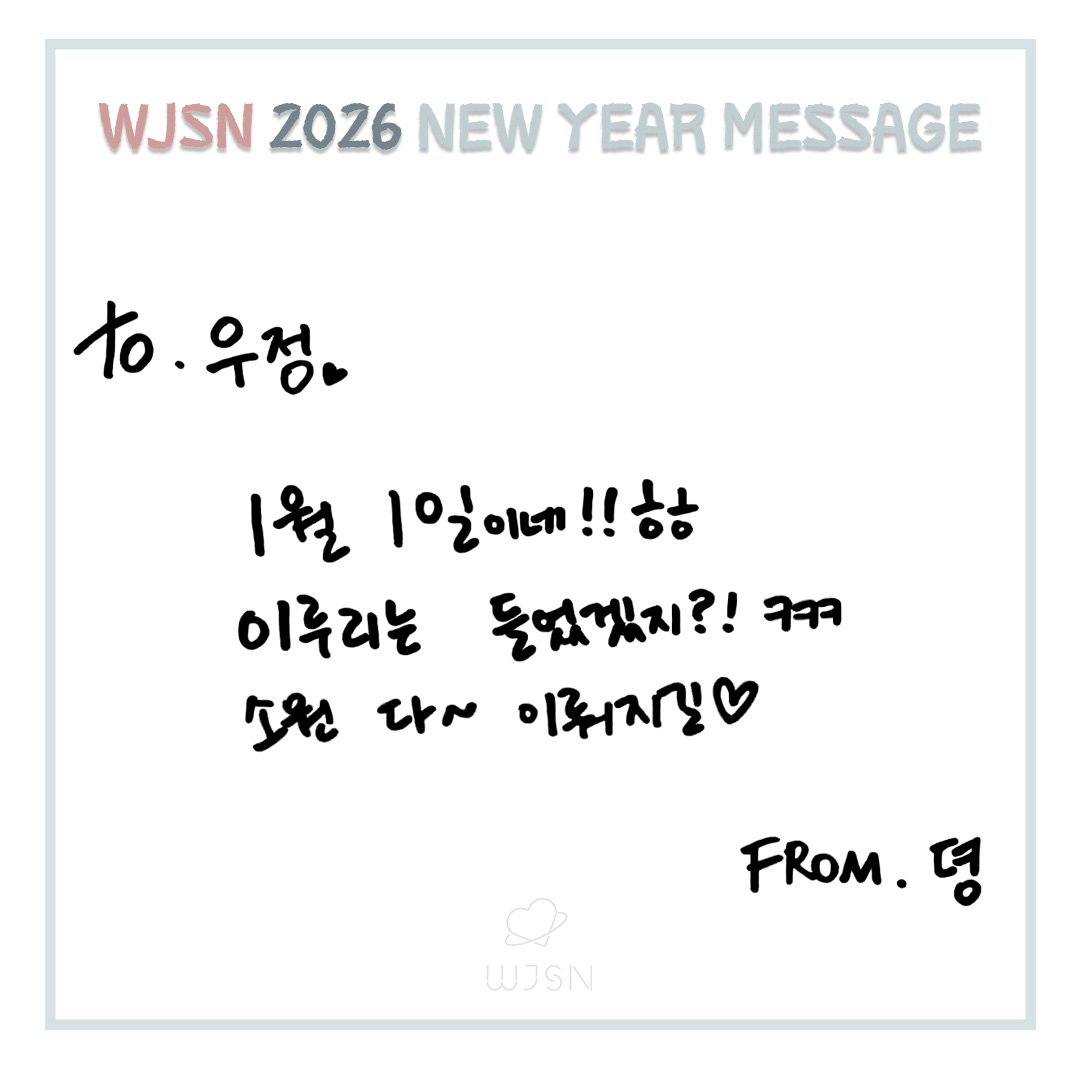 WJSN 2026 NEW YEAR MESSAGE
to. 우정♥
1월 1일이네!! ㅎㅎ
이루리는 들었겠지?! ㅋㅋㅋ
소원 다~ 이뤄지길♡
FROM. 뎡
WJSN